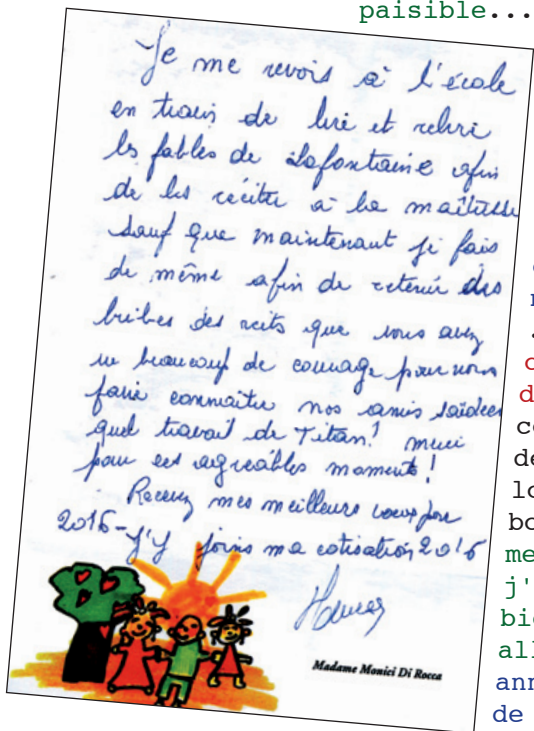 paisible...
Je me revois à l'école
en train de lire et relire
les fables de Lafontaine afin
de les réciter à la maîtresse
sauf que maintenant je fais
de même afin de retenir des
bribes des récits que vous avez
eu beaucoup de courage pour nous
faire connaître nos amis
quel travail de Titan! merci
pour ces agréables moments!
Recevez mes meilleurs voeux pour
2016 - J'y joins ma cotisation 2016
Madame Monici Di Rocca
d
co
de
lo
bo
me
j'
bi
all
ann
de